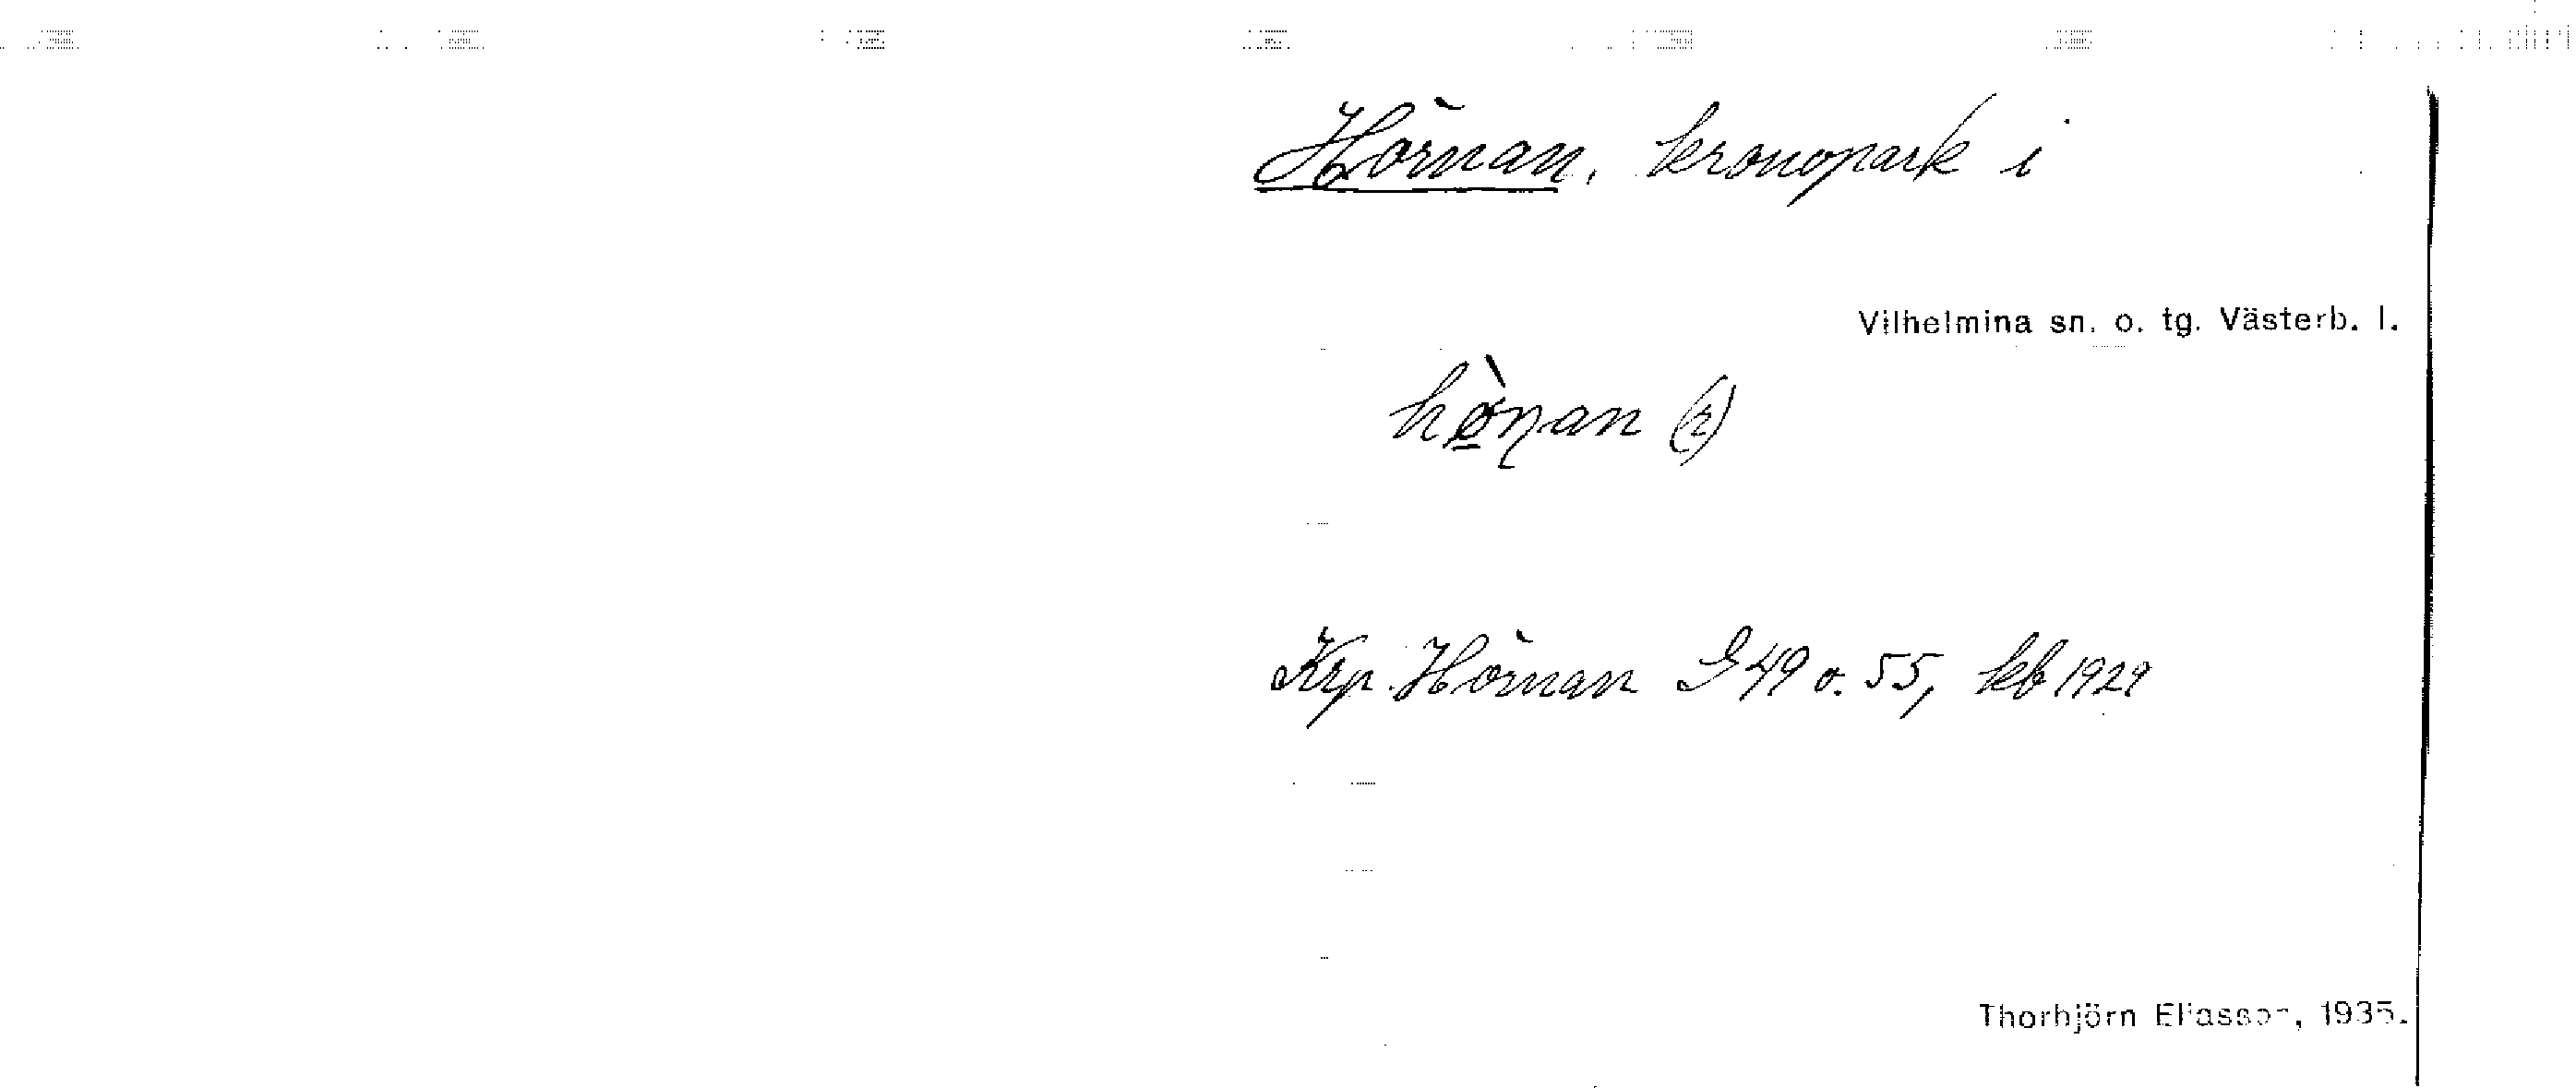 Hörnan, kronopark i
Vilhelmina sn. o. tg. Västerb. l.
hø̠̀ɳan (2)
Krp. Hörnan G 49 o. 55, kb 1929
Thorbjörn Eliasson, 1935.